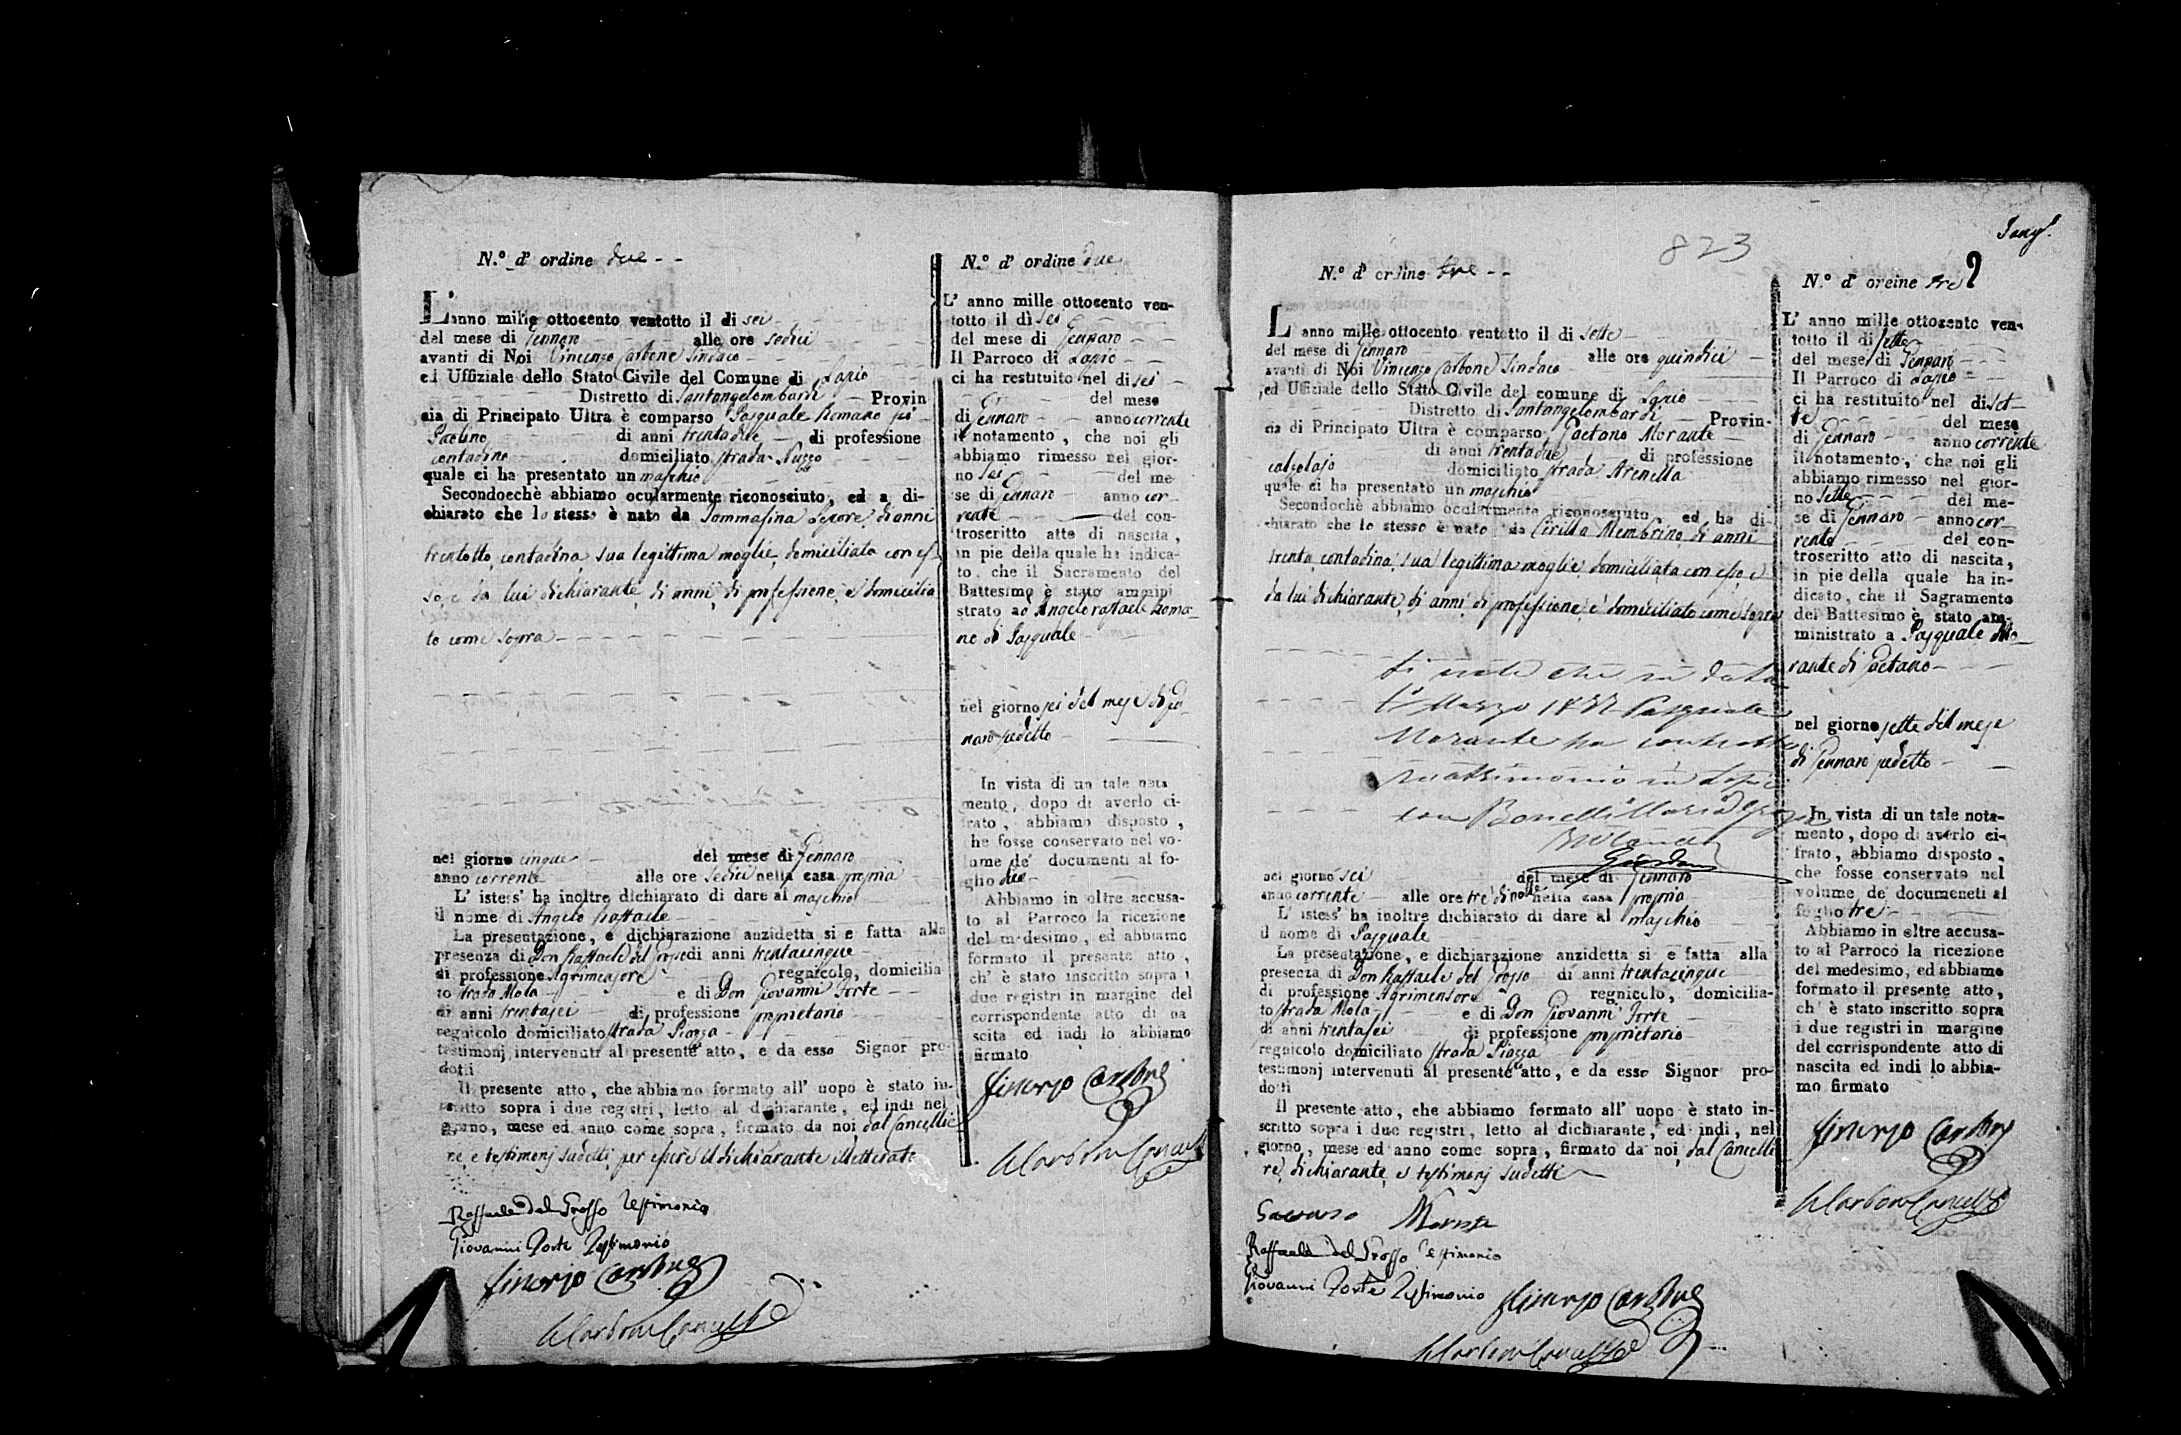 N.º d' ordine due - -
L'anno mille ottocento ventotto il di sei
del mese di Gennaro alle ore sedici
avanti di Noi Vincenzo Carbone Sindaco
ed Uffiziale dello Stato Civile del Comune di Lapio
Distretto di Santangelombardi Provin
cia di Principato Ultra è comparso Pasquale Romano
Paolino di anni trentadue di professione
contadino domiciliato strada
quale ci ha presentato un maschio
Secondoechè abbiamo ocularmente riconosciuto, ed a di-
chiarato che lo stesso è nato da Tommasina Lepore di anni
trentotto, contadina, sua legittima moglie, domiciliata con es-
so, e da lui dichiarante, di anni, di professione, e domicilia
to come sopra
nel giorno cinque del mese di Gennaro
anno corrente alle ore sedici nella casa propria
L' istess' ha inoltre dichiarato di dare al maschio
il nome di Angelo Raffaele
La presentazione, e dichiarazione anzidetta si e fatta alla
presenza di Don Raffaele del Grosso di anni trentacinque
di professione Agrimensore regnicolo, domicilia
to strada Mola e di Don Giovanni Forte
di anni trentasei di professione proprietario
regnicolo domiciliato strada Piazza
testimonj intervenuti al presente atto, e da esso Signor pro-
dotti
Il presente atto, che abbiamo formato all' uopo è stato in-
scritto sopra i due registri, letto al dichiarante, ed indi nel
giorno, mese ed anno come sopra, firmato da noi dal Cancellie
re, e testimonj sudetti per essere il dichiarante illetterato
Raffaele del Grosso Testimonio
Giovanni Forte Testimonio
Vincenzo Carbone
Carbone Cancell
N.º d' ordine due
L' anno mille ottocento ven-
totto il dì sei
del mese di Gennaro
Il Parroco di Lapio
ci ha restituito nel di sei
del mese
di Gennaro anno corrente
il notamento, che noi gli
abbiamo rimesso nel gior-
no sei del me-
se di Gennaro anno cor-
rente del con-
troscritto atto di nascita,
in pie della quale ha indica-
to, che il Sacramento del
Battesimo è stato ammini
strato ad Angelo raffaele Roma-
no di Pasquale
nel giorno sei del mese di Gen-
naro sudetto
In vista di un tale nota
mento, dopo di averlo ci-
frato, abbiamo disposto,
che fosse conservato nel vo-
lume de' documenti al fo-
glio due
Abbiamo in oltre accusa-
to al Parroco la ricezione
del medesimo, ed abbiamo
formato il presente atto,
ch' è stato inscritto sopra i
due registri in margine del
corrispondente atto di na
scita ed indi lo abbiamo
firmato
Vincenzo Carbone
Carbone Cancell
823
N.º d' ordine tre - -
L' anno mille ottocento ventotto il di sette
del mese di Gennaro alle ore quindici
avanti di Noi Vincenzo Carbone Sindaco
ed Uffiziale dello Stato Civile del comune di Lapio
Distretto di Santangelombardi Provin-
cia di Principato Ultra è comparso Gaetano Morante
di anni trentadue di professione
calzolajo domiciliato strada Arenella
quale ci ha presentato un maschio
Secondochè abbiamo ocularmente riconosciuto ed ha di-
chiarato che lo stesso è nato da Cirilla Membrino di anni
trenta, contadina, sua legittima moglie, domiciliata con esso, e
da lui dichiarante, di anni, di professione, e domiciliato come sopra
Si nota che in data
Marzo Pasquale
Morante ha contratto
matrimonio in Lapio
con Maria
nel giorno sei del mese di Gennaro
anno corrente alle ore tre di notte nella casa propria
L' istess' ha inoltre dichiarato di dare al maschio
il nome di Pasquale
La presentazione, e dichiarazione anzidetta si e fatta alla
presenza di Don Raffaele del Grosso di anni trentacinque
di professione Agrimensore regnicolo, domicilia-
to strada Mola e di Don Giovanni Forte
di anni trentasei di professione proprietario
regnicolo domiciliato strada Piazza
testimonj intervenuti al presente atto, e da esso Signor pro-
dotti
Il presente atto, che abbiamo formato all' uopo è stato in-
scritto sopra i due registri, letto al dichiarante, ed indi, nel
giorno, mese ed anno come sopra, firmato da noi dal Cancellie
re, dichiarante, e testimonj sudetti
Morante
Raffaele del Grosso Testimonio
Giovanni Forte Testimonio Vincenzo Carbone
Carbone Cancell
2
N.º d' oreine tre
L' anno mille ottocento ven-
totto il di sette
del mese di Gennaro
Il Parroco di Lapio
ci ha restituito nel di set-
te del mese
di Gennaro anno corrente
il notamento, che noi gli
abbiamo rimesso nel gior-
no sette del me-
se di Gennaro anno cor-
rente del con-
troscritto atto di nascita,
in pie della quale ha in-
dicato, che il Sagramento
del Battesimo è stato am-
ministrato a Pasquale Mo-
rante di Gaetano
nel giorno sette del mese
di Gennaro sudetto
In vista di un tale nota-
mento, dopo di averlo ci-
frato, abbiamo disposto,
che fosse conservato nel
volume de' documeneti al
foglio tre
Abbiamo in oltre accusa-
to al Parroco la ricezione
del medesimo, ed abbiamo
formato il presente atto,
ch' è stato inscritto sopra
i due registri in margine
del corrispondente atto di
nascita ed indi lo abbia-
mo firmato
Vincenzo Carbone
Carbone Cancell